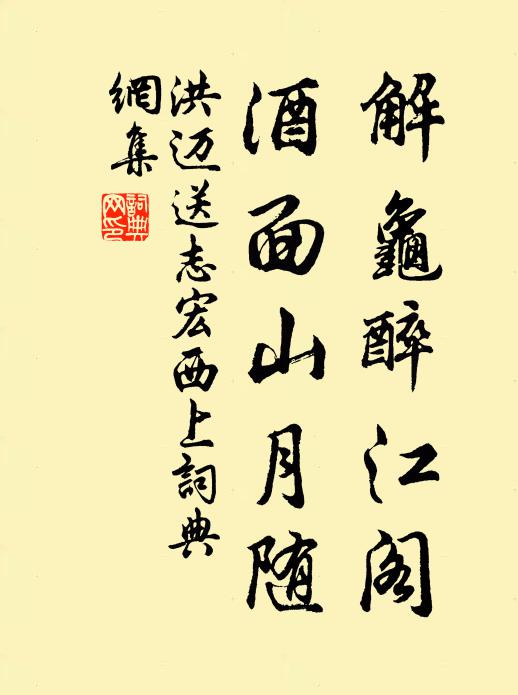 解龜醉江阁
酒面山月随
洪迈送志宏西上詞典
網集
詞典网印